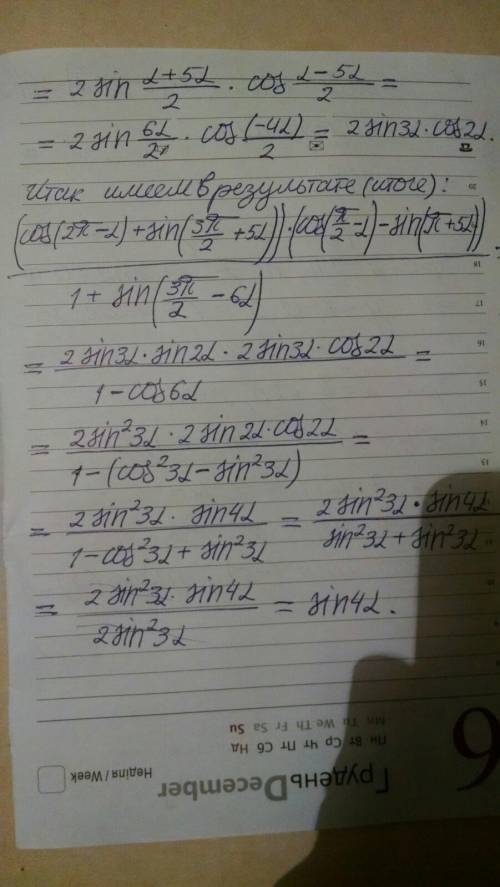 = 2 sin (α+5α)/2 · cos (α−5α)/2 =
= 2 sin 6α/2 · cos (−4α)/2 = 2 sin3α · cos2α.
Итак имеем в результате (итоге):
(cos(2π−α)+sin(3π/2+5α))·(cos(π/2−α)−sin(π+5α))
1 + sin(3π/2 − 6α)
= (2 sin3α · sin2α · 2 sin3α · cos2α)/(1−cos6α) =
= (2sin²3α · 2 sin2α · cos2α)/(1−(cos²3α−sin²3α)) =
= (2 sin²3α · sin4α)/(1−cos²3α + sin²3α) = (2 sin²3α · sin4α)/(sin²3α + sin²3α)
= (2 sin²3α · sin4α)/(2 sin²3α) = sin4α.
13
14
15
16
17
18
6
Грудень December
Неділя / Week
Пн Вт Ср Чт Пт Сб Нд
Mn Tu We Th Fr Sa Su